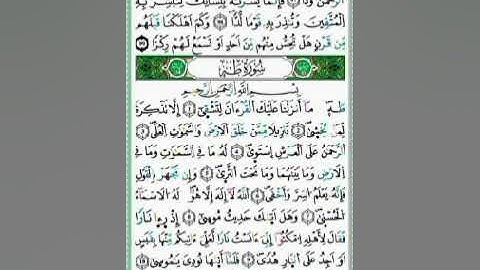 الرَّحْمَٰنُ وُدًّا ۝ فَإِنَّمَا يَسَّرْنَٰهُ بِلِسَانِكَ لِتُبَشِّرَ بِهِ
الْمُتَّقِينَ وَتُنذِرَ بِهِ قَوْمًا لُّدًّا ۝ وَكَمْ أَهْلَكْنَا قَبْلَهُم
مِّن قَرْنٍ هَلْ تُحِسُّ مِنْهُم مِّنْ أَحَدٍ أَوْ تَسْمَعُ لَهُمْ رِكْزًا ۝
سُورَةُ طَهَ
بِسْمِ اللَّهِ الرَّحْمَٰنِ الرَّحِيمِ
طَهَ مَا أَنزَلْنَا عَلَيْكَ الْقُرْءَانَ لِتَشْقَىٰ ۝ إِلَّا تَذْكِرَةً
لِّمَن يَخْشَىٰ ۝ تَنزِيلًا مِّمَّنْ خَلَقَ الْأَرْضَ وَالسَّمَٰوَٰتِ الْعُلَى ۝
الرَّحْمَٰنُ عَلَى الْعَرْشِ اسْتَوَىٰ ۝ لَهُ مَا فِي السَّمَٰوَٰتِ وَمَا فِي
الْأَرْضِ وَمَا بَيْنَهُمَا وَمَا تَحْتَ الثَّرَىٰ ۝ وَإِن تَجْهَرْ بِالْقَوْلِ
فَإِنَّهُ يَعْلَمُ السِّرَّ وَأَخْفَى ۝ اللَّهُ لَا إِلَٰهَ إِلَّا هُوَ لَهُ الْأَسْمَاءُ
الْحُسْنَىٰ ۝ وَهَلْ أَتَىٰكَ حَدِيثُ مُوسَىٰ ۝ إِذْ رَءَا نَارًا
فَقَالَ لِأَهْلِهِ امْكُثُوا إِنِّي ءَانَسْتُ نَارًا لَّعَلِّي ءَاتِيكُم مِّنْهَا بِقَبَسٍ
أَوْ أَجِدُ عَلَى النَّارِ هُدًى ۝ فَلَمَّا أَتَىٰهَا نُودِيَ يَٰمُوسَىٰ ۝